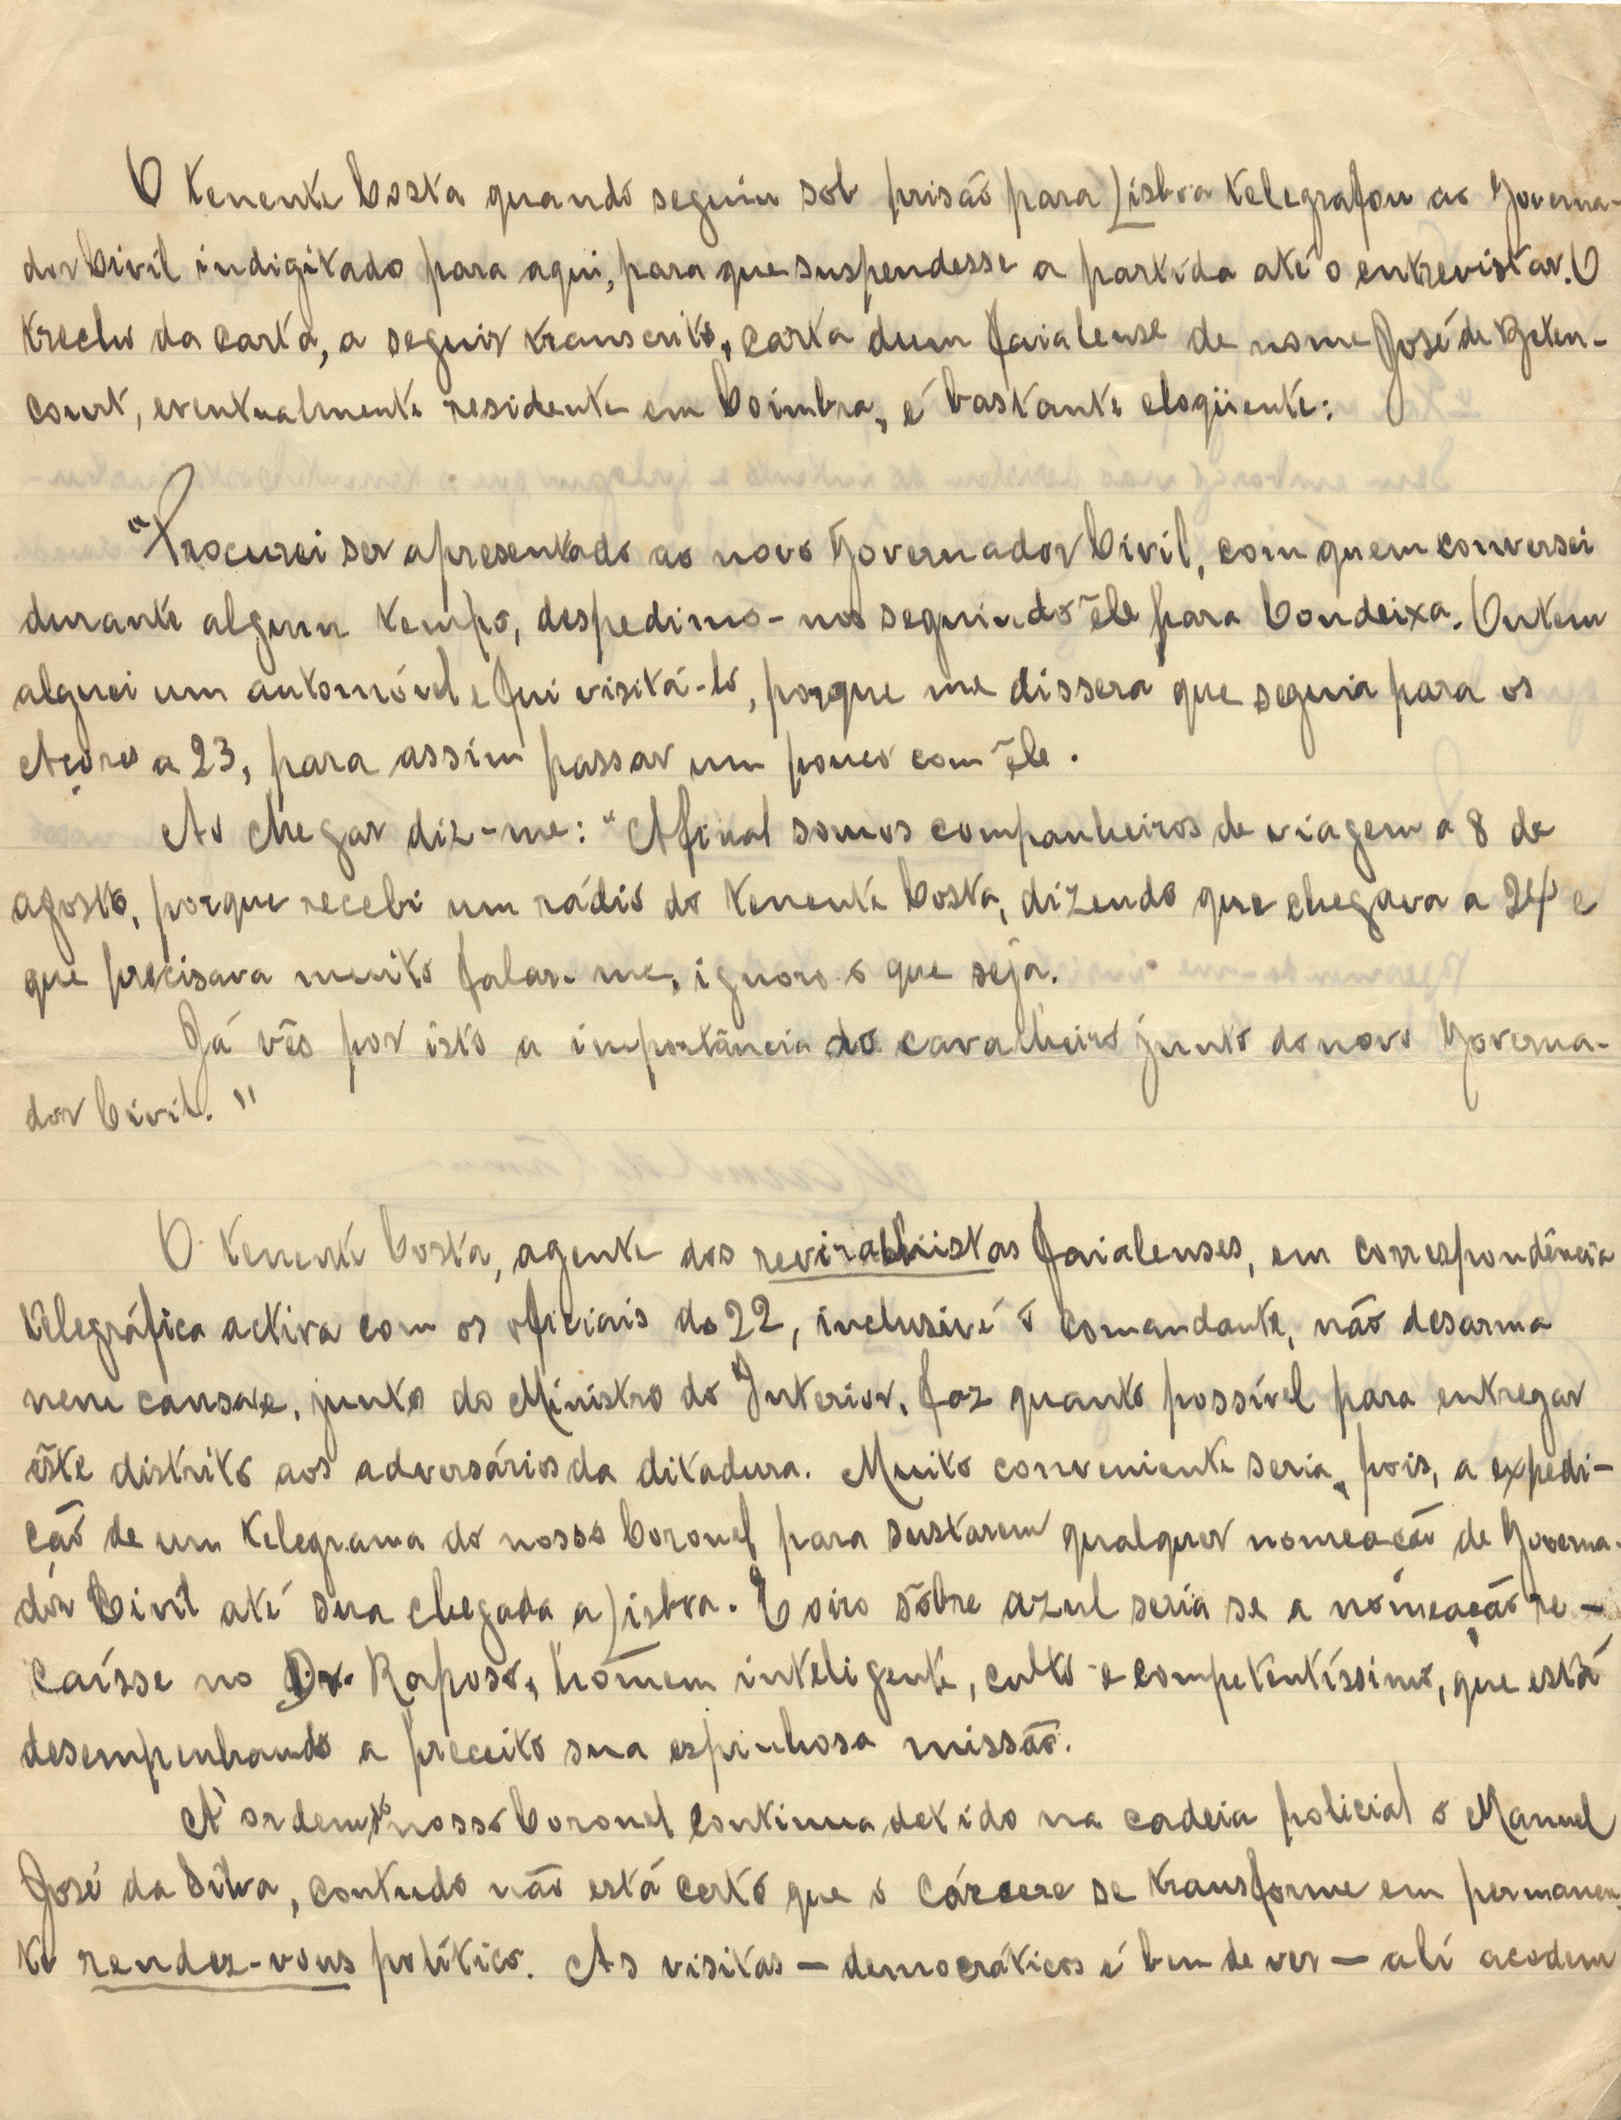 O tenente Costa quando seguiu sob prisão para Lisboa telegrafou ao Governa-
dor Civil indigitado para aqui, para que suspendesse a partida até o entrevistar. O
trecho da carta, a seguir transcrito, carta dum faialense de nome José de Beten-
court, eventualmente residente em Coimbra, é bastante eloqüente:
"Procurei ser apresentado ao novo Governador Civil, com quem conversei
durante algum tempo, despedimo-nos seguindo êle para Condeixa. Ontem
alguei um automóvel e fui visitá-lo, porque me dissera que seguia para os
Açores a 23, para assim passar um pouco com êle.
Ao chegar diz-me: "Afinal somos companheiros de viagem a 8 de
agosto, porque recebi um rádio do tenente Costa, dizendo que chegava a 24 e
que precisava muito falar-me, ignoro o que seja.
Já vês por isto a importância do cavalheiro junto do novo Governa-
dor Civil."
O tenente Costa, agente dos reviralhistas faialenses, em correspondência
telegráfica activa com os oficiais do 22, inclusivé o comandante, não desarma
nem cansa e, junto do Ministro do Interior, faz quanto possível para entregar
êste distrito aos adversários da ditadura. Muito conveniente seria, pois, a expedi-
ção de um telegrama do nosso Coronel para sustarem qualquer nomeação de Governa-
dor Civil até sua chegada a Lisboa. E oiro sôbre azul seria se a nomeação re-
caísse no Dr. Raposo, homem inteligente, culto e competentíssimo, que está
desempenhando a preceito sua espinhosa missão.
A' ordem do nosso Coronel continua detido na cadeia policial o Manuel
José da Silva, contudo não está certo que o cárcere se transforme em permanen-
te rendez-vous político. As visitas — democráticos é bem de ver — ali acodem